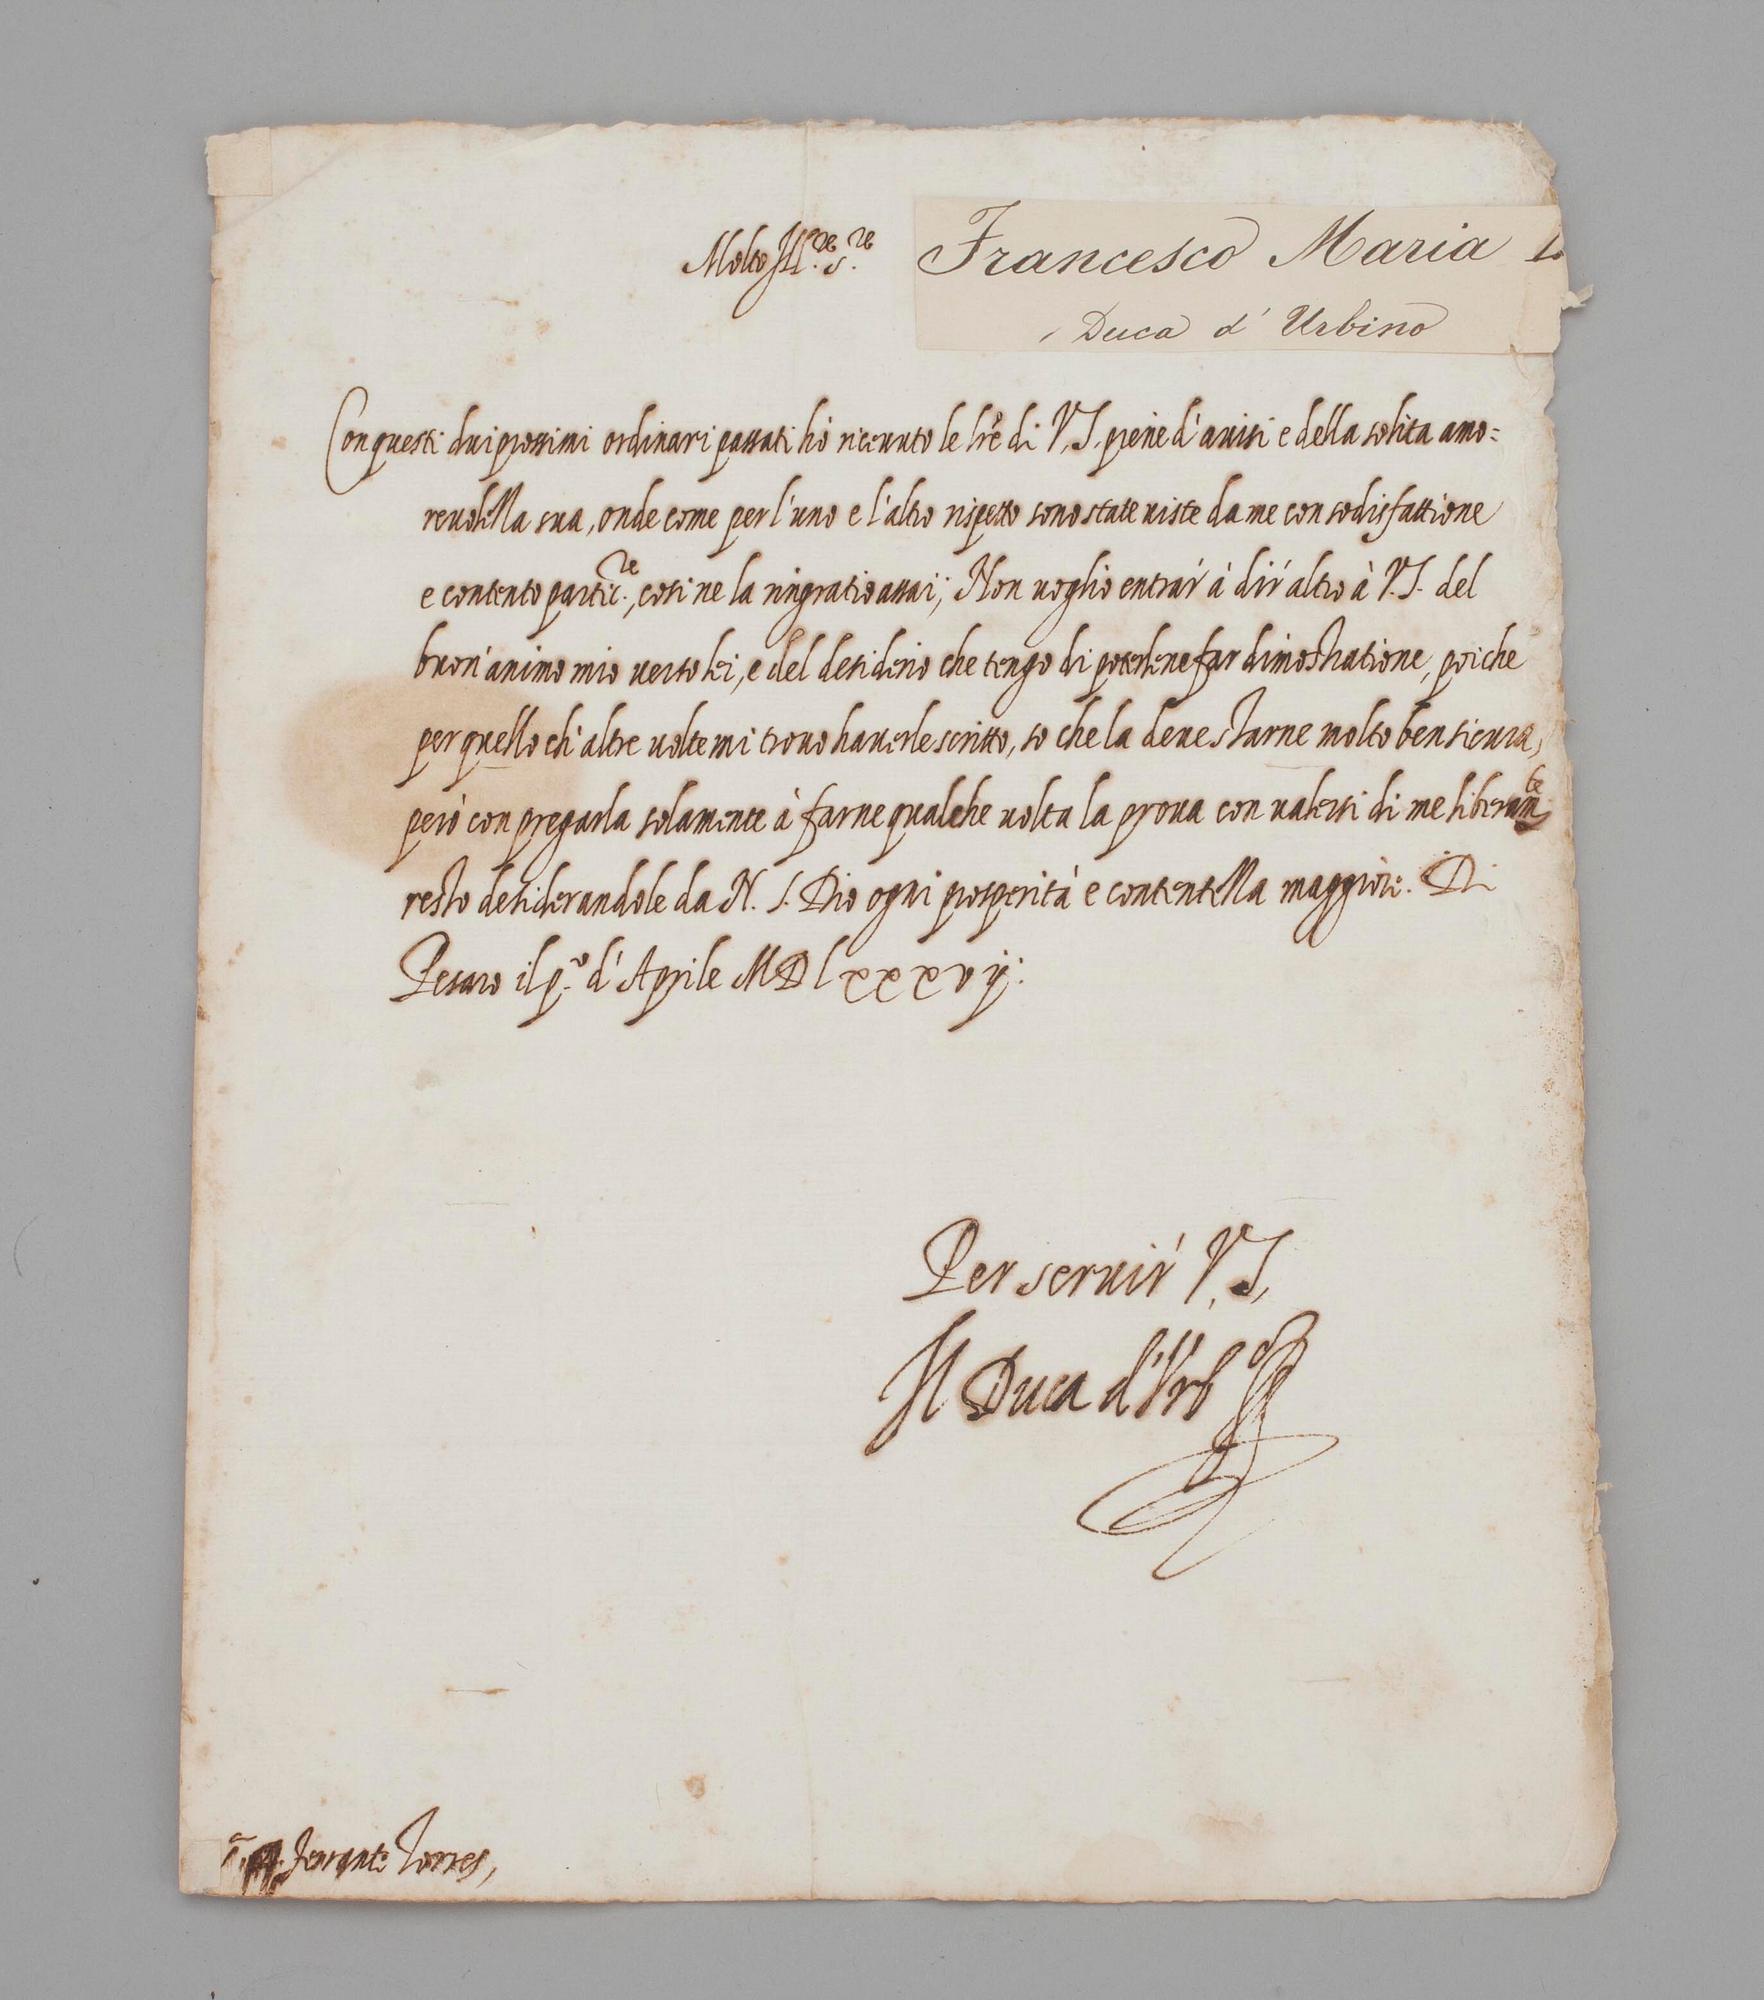 Molto Ill.re S.re
Francesco Maria
Duca d' Urbino
Con questi dui prossimi ordinari passati hò riceuuto le lre di V.S. piene d'auisi e della solita amo=
reuolezza sua, onde come per l'uno e l'altro rispetto sono state uiste da me con sodisfattione
e contento partic.re, cosi ne la ringratio assai; Non uoglio entrar' à dir' altro à V.S. del
buon' animo mio uerso lei, e del desiderio che tengo di potерlene far dimostratione, poiche
per quello ch' altre uolte mi trouo hauerle scritto, so che la deue starne molto ben sicura,
però con pregarla solamente à farne qualche uolta la proua con ualersi di me liberam.te
resto desiderandole da N. S. Dio ogni prosperità e contentezza maggiore. Di
Pesaro il p.o d' Aprile MDlxxxvij.
Per seruir' V.S.
Il Duca d'Urb.o
Ferrante Torres,